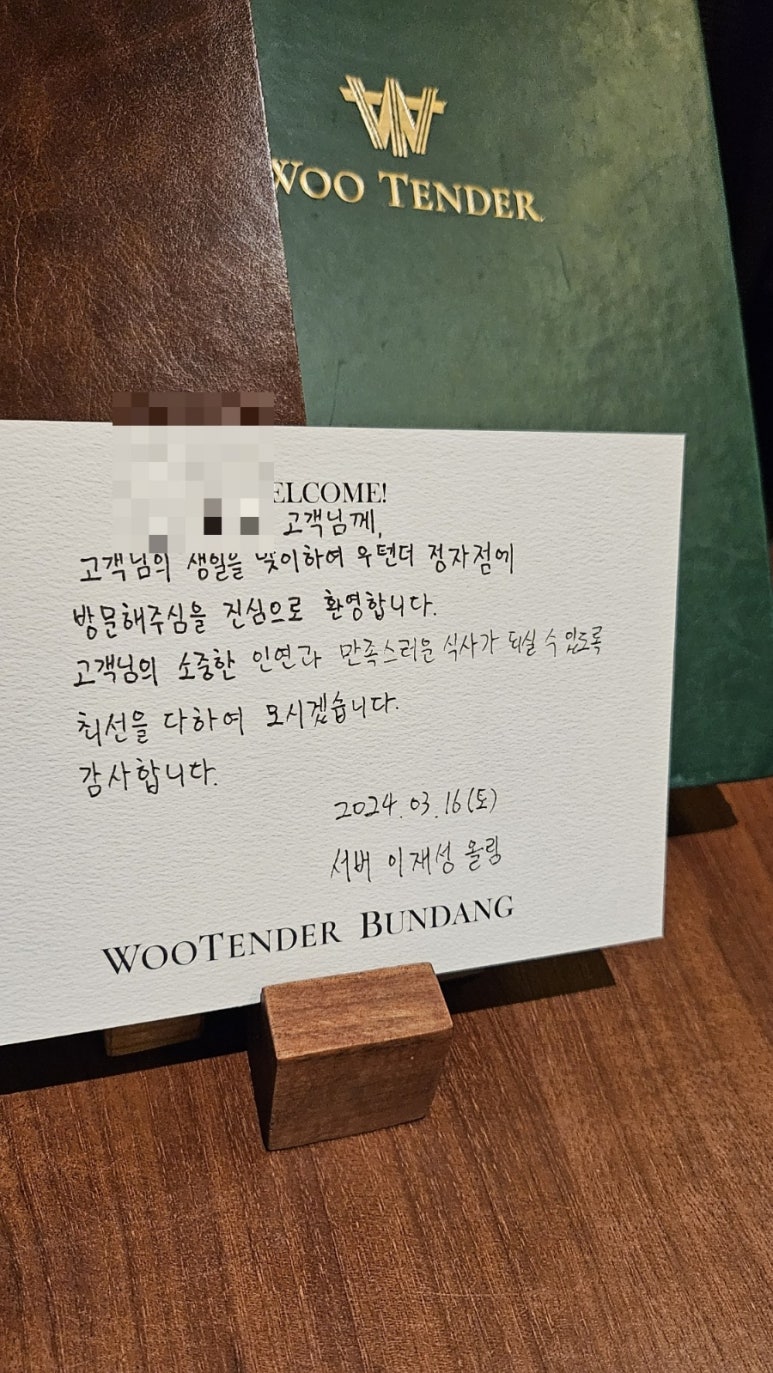 WOO TENDER
ELCOME!
고객님께,
고객님의 생일을 맞이하여 우텐더 정자점에
방문해주심을 진심으로 환영합니다.
고객님의 소중한 인연과 만족스러운 식사가 되실 수 있도록
최선을 다하여 모시겠습니다.
감사합니다.
2024.03.16(토)
서버 이재성 올림
WOOTENDER BUNDANG